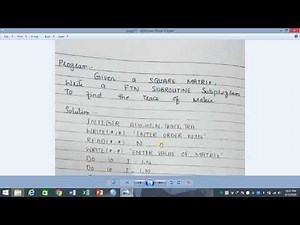 Program
Given a SQUARE MATRIX.
Write a FTN SUBROUTINE Subprogram
To find the Trace of Matrix
Solution
INTEGER
WRITE(*,*) 'ENTER ORDER
READ(*,*) N
WRITE(*,*) 'ENTER VALUE OF MATRIX'
DO 10 I = 1,N
DO 10 J = 1,N